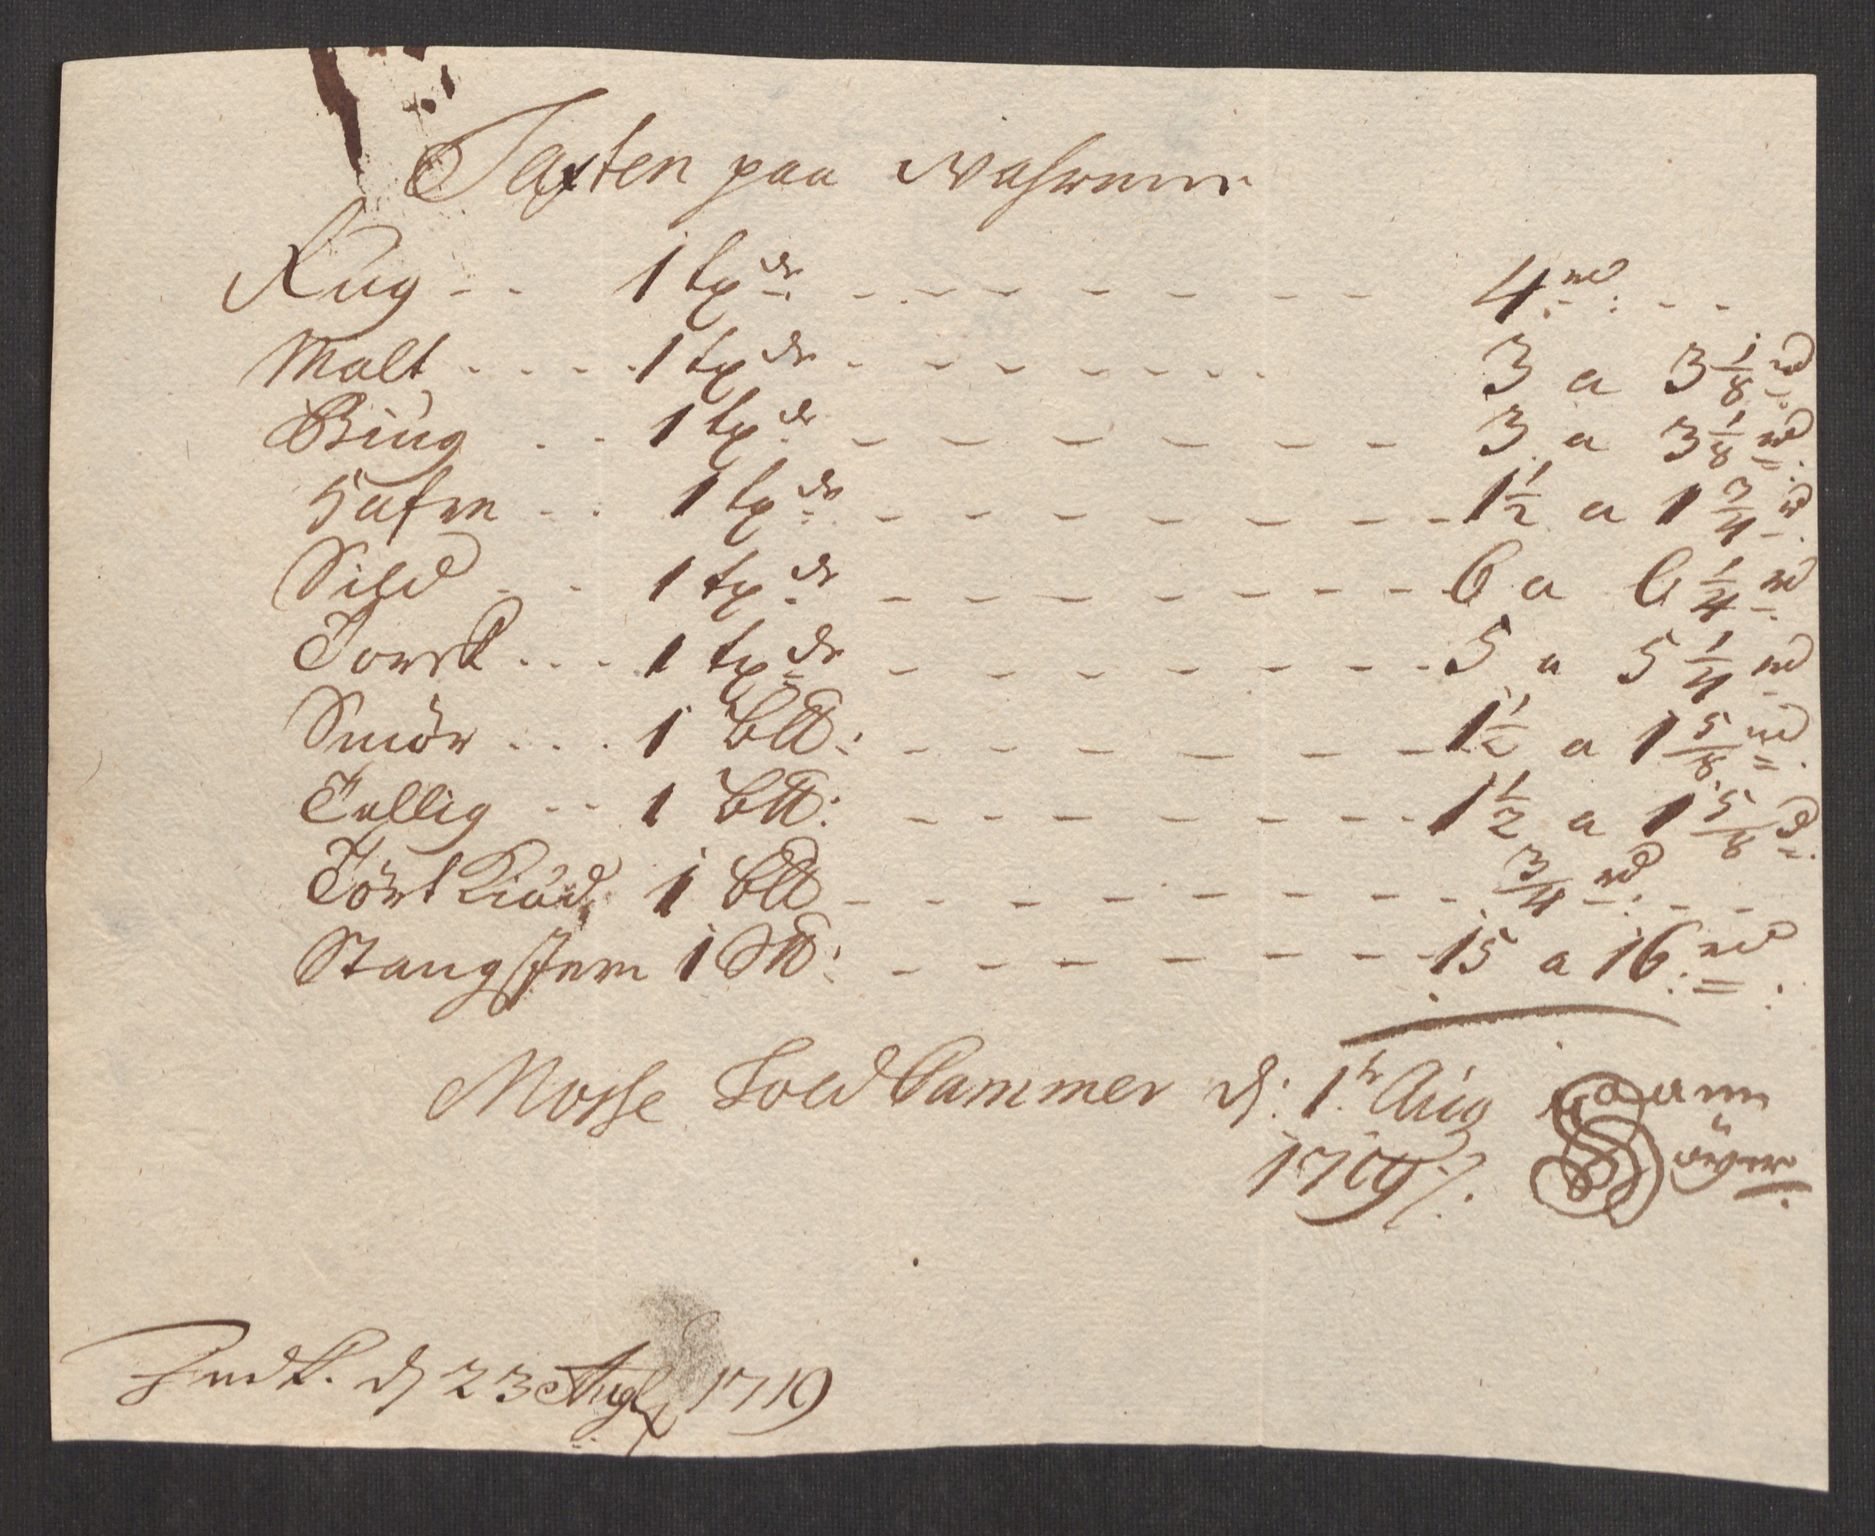 Taxten paa wahrerne
Rug - - 1 tøde - - - - - - - - 4 rd - -
Malt - - - - 1 tøde - - - - - - - 3 a 3 1/8 rd
Biug - - 1 tøde - - - - - - - - 3 a 3 1/8 rd
Hafre - - 1 tøde - - - - - - - - 1 1/2 a 1 3/4 rd
Sild - - 1 tøde - - - - - - - - 6 a 6 1/4 rd
Torsk - - - 1 tøde - - - - - - - - 5 a 5 1/4 rd
Smör - - - 1 b℔: - - - - - - - 1 1/2 a 1 5/8 rd
Tallig - - 1 b℔: - - - - - - - - 1 1/2 a 1 5/8 rd
Tört Kiöd 1 b℔ - - - - - - - - 3/4 rd - -
Stangjern 1 S℔: - - - - - - - 15 a 16 rd
Mosse Told Cammer d: 1te Aug
1719
d 23 Augt 1719